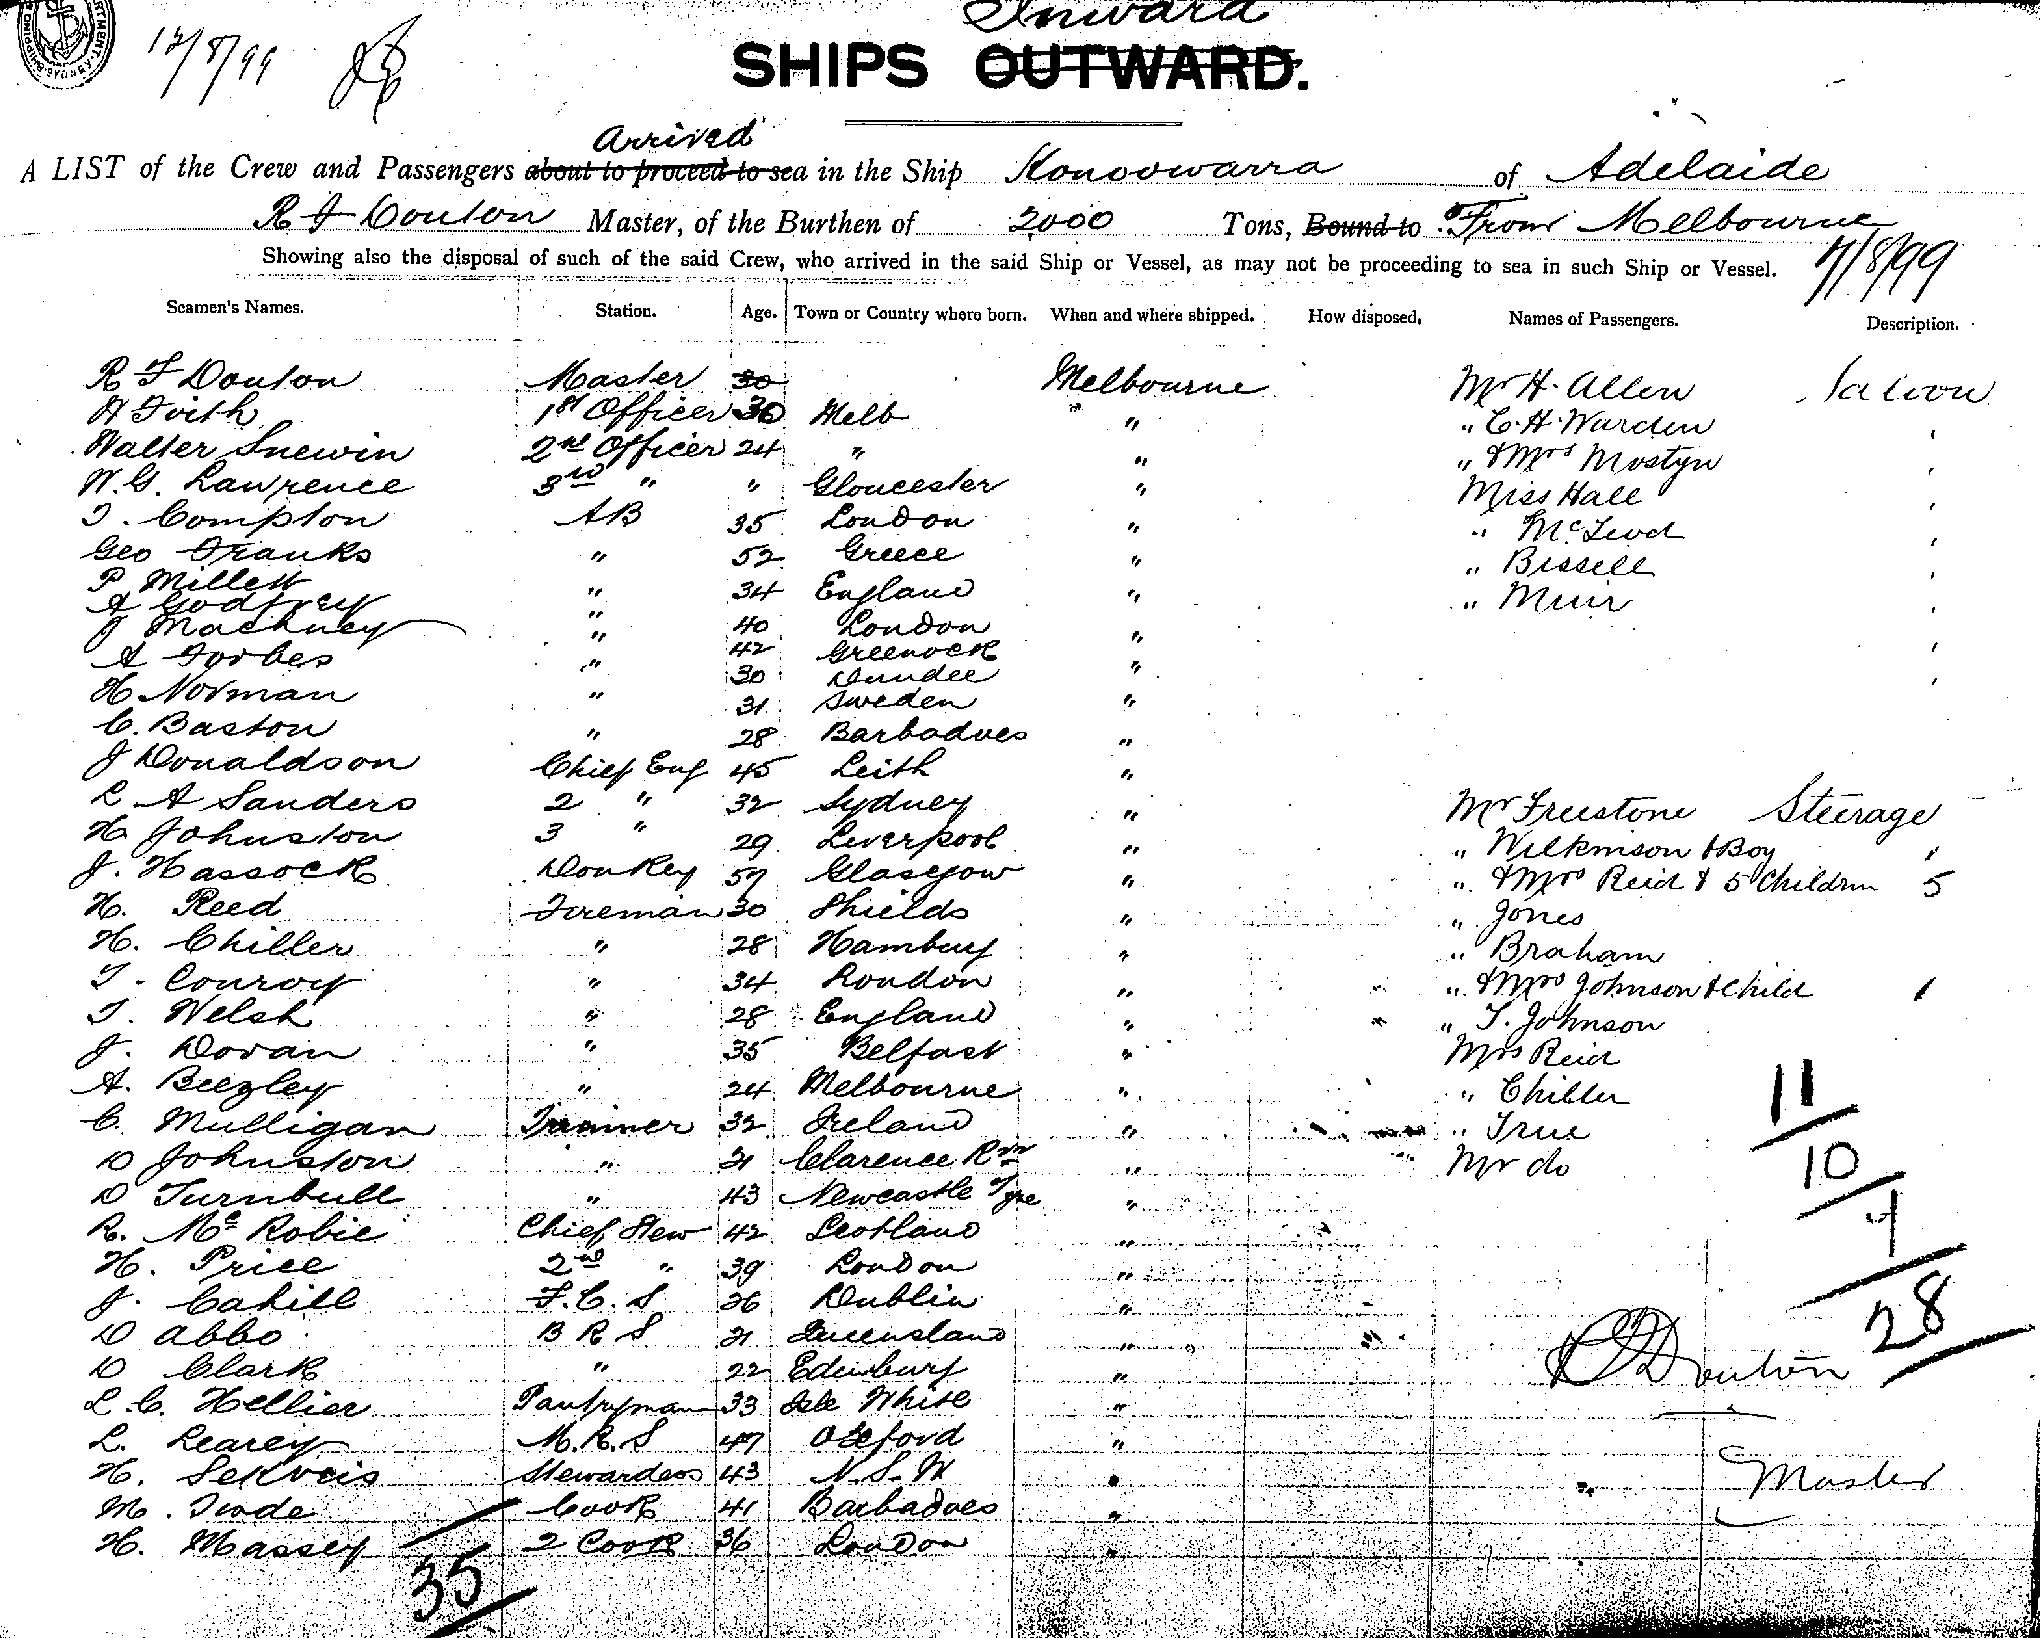 12/8/99
Inward
SHIPS OUTWARD.
Arrived
A LIST of the Crew and Passengers about to proceed to sea in the Ship Konoowarra of Adelaide
R F Douton Master, of the Burthen of 2000 Tons, Bound to From Melbourne
Showing also the disposal of such of the said Crew, who arrived in the said Ship or Vessel, as may not be proceeding to sea in such Ship or Vessel. 7/8/99
Seamen's Names. Station. Age. Town or Country where born. When and where shipped. How disposed. Names of Passengers. Description.
R F Douton Master 30 Melbourne Mr H. Allen Saloon
H 1st Officer 30 Melb " " C. H. Warden "
Walter Snewin 2nd Officer 24 " " " & Mrs Mostyn "
W. G. Lawrence 3rd " " Gloucester " Miss Hall "
T. Compton AB 35 London " " McLeod "
Geo Franks " 52 Greece " " Bissell "
P Millett " 34 England " " Muir "
A Godfrey " 40 London "
J Machney " 42 Greenock "
A Forbes " 30 Dundee "
H Norman " 31 Sweden "
C. Baston " 28 Barbadoes "
J Donaldson Chief Eng 45 Leith "
L A Sanders 2 " 32 Sydney " Mr Freestone Steerage
H Johnston 3 " 29 Liverpool " " Wilkinson & Boy "
J. Hassock Donkey 57 Glasgow " " & Mrs Reid & 5 Children 5
H. Reed Fireman 30 Shields " " Jones
H. Chiller " 28 Hamburg " " Braham
T. Conroy " 34 London " " & Mrs Johnson & Child 1
T. Welsh " 28 England " " T. Johnson
J. Doran " 35 Belfast " Mrs Reid
A. Beezley " 24 Melbourne " " Chiller
C. Mulligan Trimmer 32 Ireland " " True
D Johnston " 21 Clarence Rvr " Mr do
D Turnbull " 43 Newcastle Tyne "
R. McRobie Chief Stew 42 Scotland "
H. Price 2nd " 39 London "
J. Cahill F. C. S 26 Dublin "
D Abbo B R S 21 Queensland "
D Clark " 22 Edinburg "
L. C. Hellier Pantryman 33 Isle White "
L. Learey M. R. S 47 Oxford "
H. Stewardess 43 N. S. W "
M. Cook 41 Barbadoes "
H. Massey 2 Cook 36 London "
35
11
10
7
28
Douton
Master